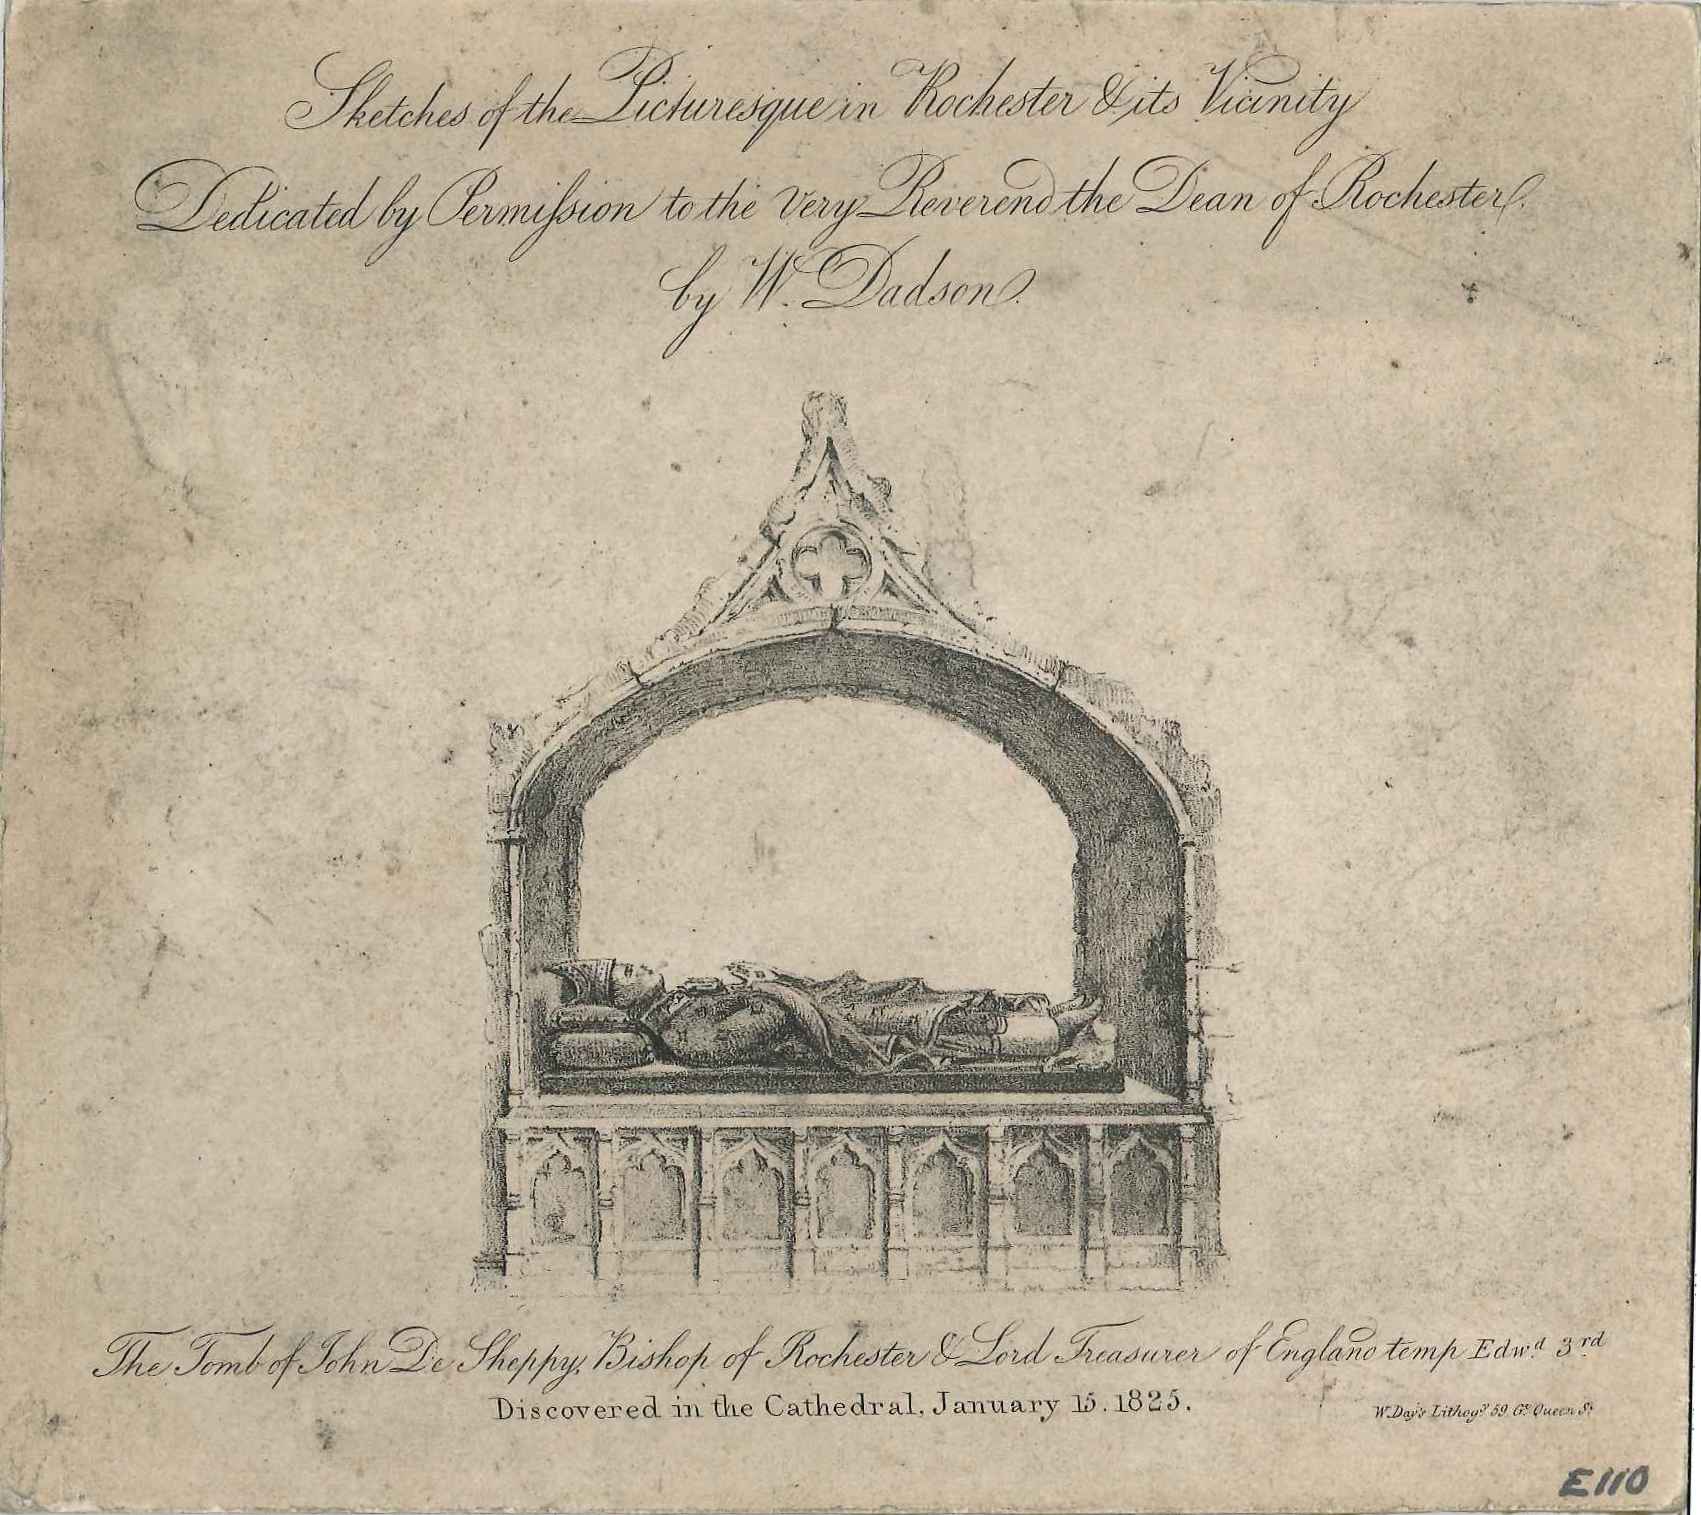 Sketches of the Picturesque in Rochester & its Vicinity
Dedicated by Permiſsion to the Very Reverend the Dean of Rochester.
by W. Dadson.
The Tomb of John De Sheppy, Bishop of Rochester & Lord Treasurer of England temp Edwd. 3rd
Discovered in the Cathedral, January 15. 1825.
W. Day's Lithogy. 59 Gt. Queen St.
E110